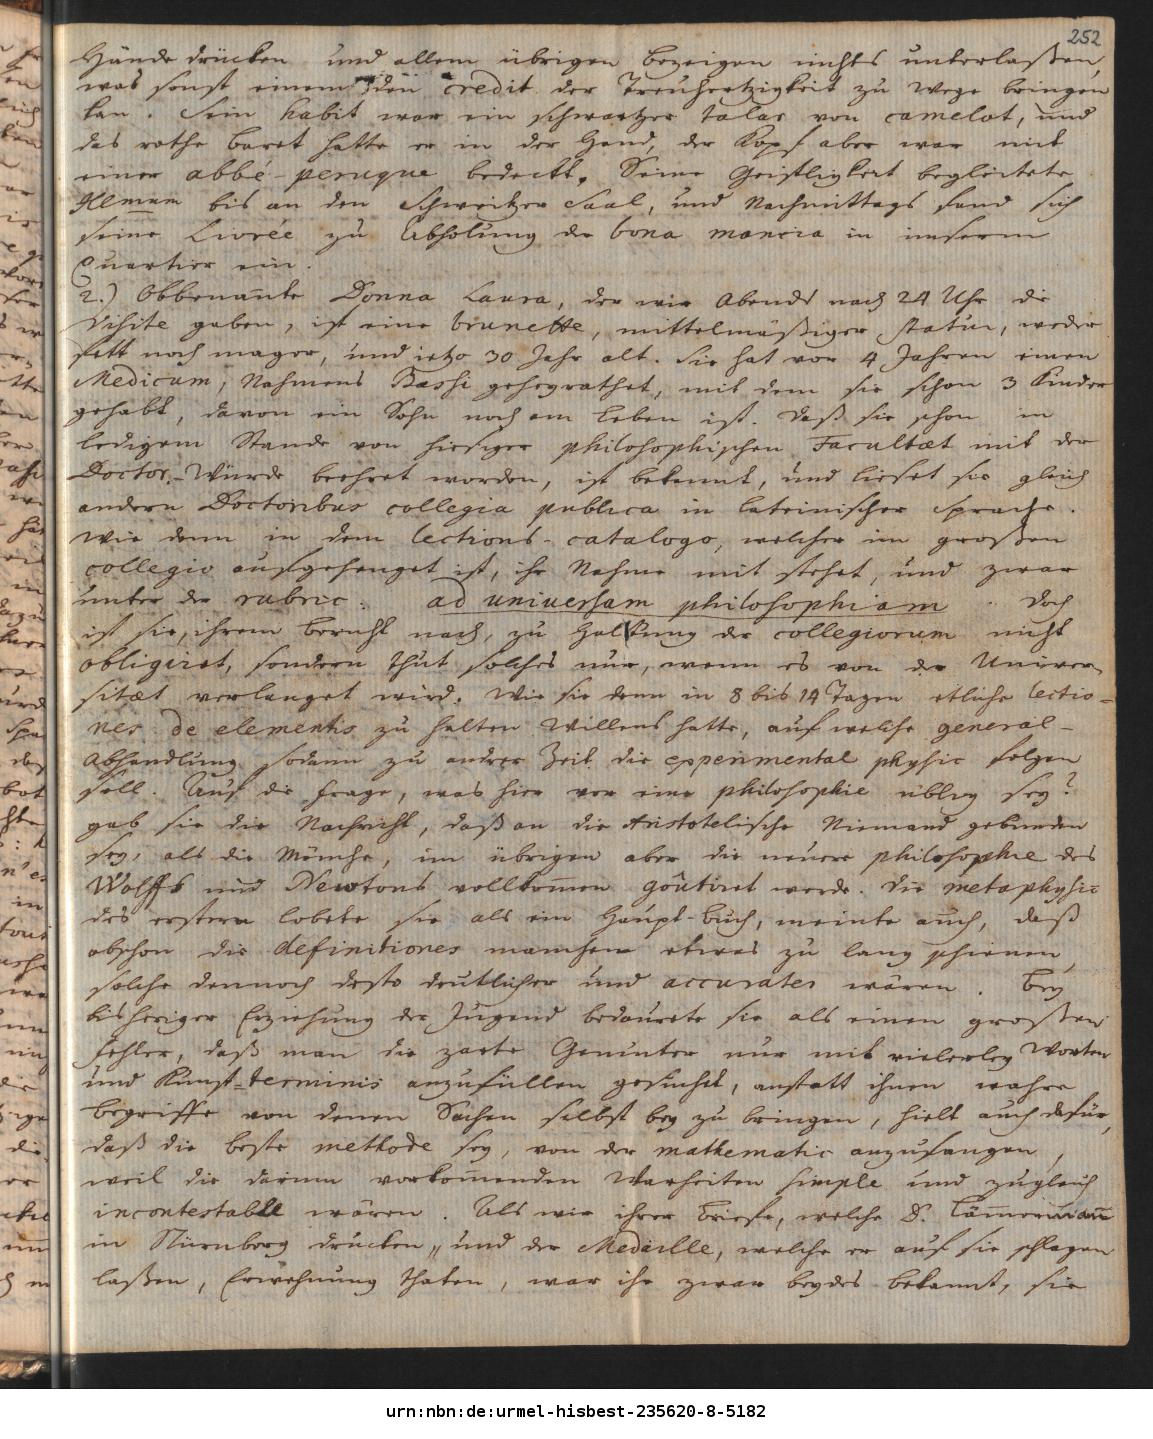 252
Hände drücken und allem übrigen bezeigen nichts unterlaßen,
was sonst einem den credit der Treuhertzigkeit zu wege bringen
kan. Sein habit war ein schwartzer talar von camelot, und
das rothe baret hatte er in der Hand, der Kopf aber war mit
einer abbé-peruque bedeckt. Seine Geistligkeit begleitete
bis an den Schweitzer Saal, und Nachmittags fand sich
seine Livrée zu Abholung der bona mancia in unserm
Quartier ein.
2.) Obbenañte Donna Laura, der wir Abends nach 24 Uhr die
Visite gaben, ist eine brunette, mittelmäßiger statur, weder
fett noch mager, und ietzo 30 Jahr alt. Sie hat vor 4 Jahren einen
Medicum, Nahmens Bassi geheyrathet, mit dem sie schon 3 Kinder
gehabt, davon ein Sohn noch am leben ist. Daß sie schon im
ledigem Stande von hiesiger philosophischen Facultæt mit der
Doctor-Würde beehret worden, ist bekannt, und lieset sie gleich
andern Doctoribus collegia publica in lateinischer Sprache.
Wie denn in dem lections-catalogo, welcher im großen
collegio aufgehenget ist, ihr Nahme mit stehet, und zwar
unter der rubric: ad universam philosophiam. Doch
ist sie, ihrem bericht nach, zu Haltung der collegiorum nicht
obligiret, sondern thut solches nur, wenn es von der Univer-
sitæt verlanget wird. Wie sie denn in 8 bis 14 Tagen etliche lectio-
nes de elementis zu halten Willens hatte, auf welche general-
Abhandlung sodann zu andrer Zeit die experimental physic folgen
soll. Auf die frage, was hier vor eine philosophie üblig sey?
gab sie die Nachricht, daß an die Aristotelische Niemand gebunden
sey, als die Mönche, im übrigen aber die neuere philosophie des
Wolffs und Newtons vollkom̄en goûtiret werde. Die metaphysic
des erstern lobete sie als ein Haupt-buch, meinte auch, daß
obschon die definitiones manchem etwas zu lang schienen,
solche dennoch desto deutlicher und accurater wären. Bey
bisheriger Erziehung der Jugend bedaurete sie als einen großen
fehler, daß man die zarte Gemüter nur mit vielerley Worten
und Kunst-terminis anzufüllen gesuchet, anstatt ihnen wahre
begriffe von denen Sachen selbst bey zu bringen, hielt auch dafür,
daß die beste methode sey, von der mathematic anzufangen,
weil die darinn vorkom̄enden Warheiten simple und zugleich
incontestable wären. Als wir ihrer briefe, welche D.
in Nürnberg drucken, und der Medaille, welche er auf sie schlagen
laßen, Erwehnung thaten, war ihr zwar beydes bekannt, sie
urn:nbn:de:urmel-hisbest-235620-8-5182